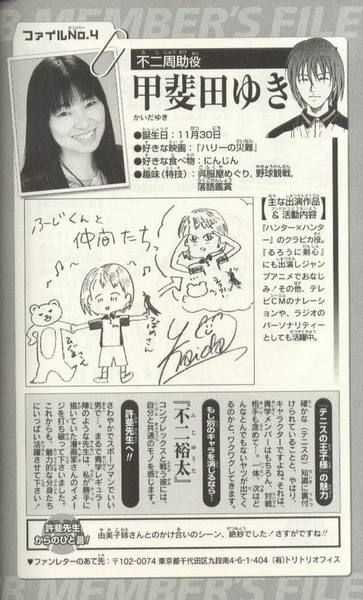 MEMBER'S FILE
ファイルNo.4
不二周助役
甲斐田ゆき
かいだゆき
●誕生日：11月30日
●好きな映画：『ハリーの災難』
●好きな食べ物：にんじん
●趣味(特技)：呉服屋めぐり, 野球観戦,
落語鑑賞
主な出演作品
&活動内容
『ハンター×ハンタ
ー』のクラピカ役。
『るろうに剣心』
にも出演しジャン
プアニメでおなじ
み!その他、テレ
ビCMのナレーショ
ンや、ラジオの
パーソナリティーと
しても活躍中。
ふーじくんと
仲間たちっ
『テニスの王子様』の魅力
確かな(テニスの)知識に裏付
けられていることと、やはり、
キャラクターですよネ。それは、
青学メンバーはもちろん、対戦
相手も含めて…。一体、次はど
んなとんでもないヤツが出てく
るのかとワクワクしてきます。
もし別のキャラを演じるなら…
『不二裕太』
コンプレックスと戦う彼には、
自分と共通のモノを感じます。
許斐先生へ!!
さわやかでスポーツマンでいい
男で…まるで青学レギュラー
陣のような先生は、私が勝手に
描いていた漫画家さんのイメー
ジを打ち破って下さいました。
これからも、魅力的な分身たち
にいっぱい活躍させて下さい!
許斐先生
からのひと言!
由美子姉さんとのかけ合いのシーン、絶妙でした!さすがですね!!
♥ファンレターのあて先：〒102-0074 東京都千代田区九段南4-6-1-404 (有)トリトリオフィス